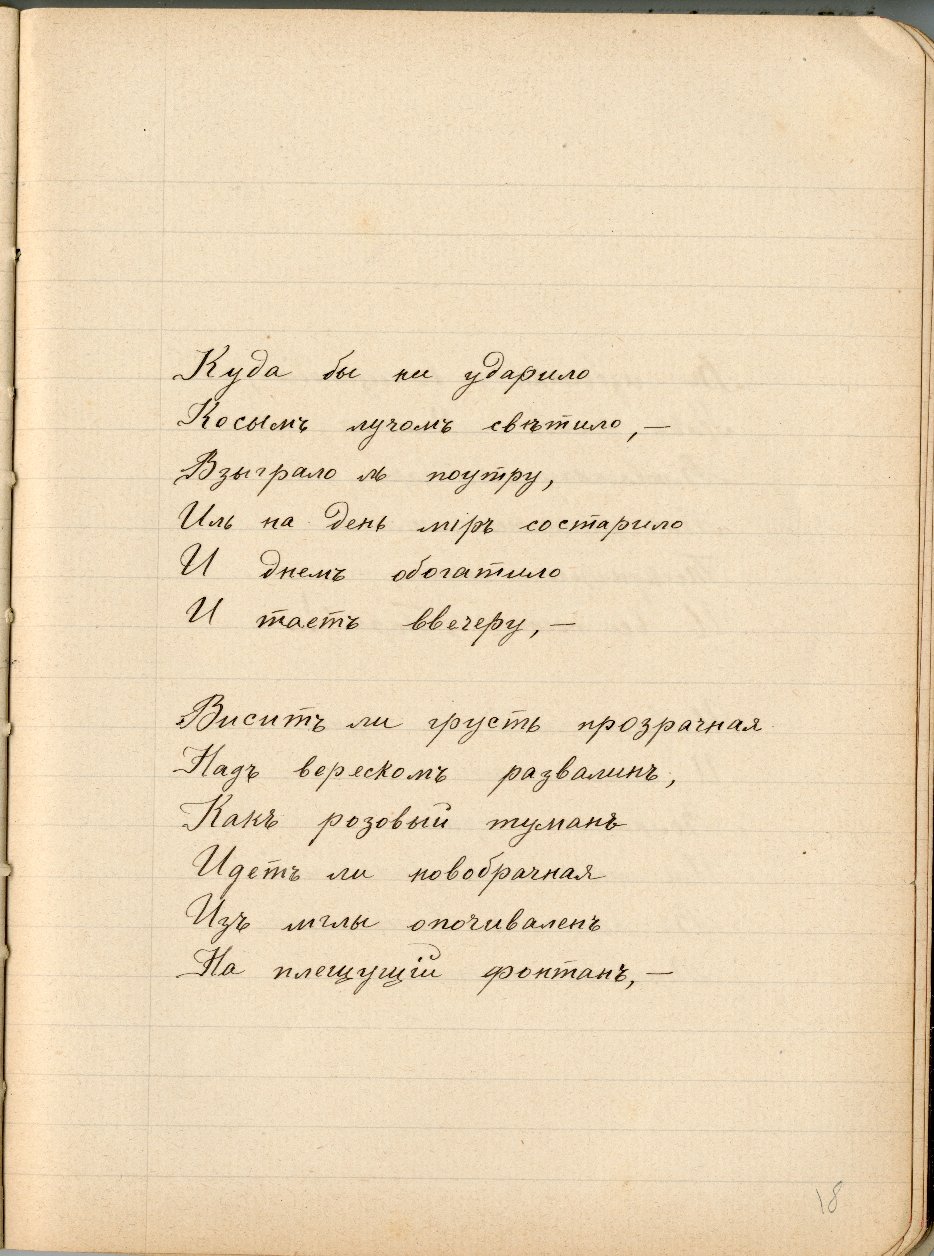 Куда бы ни ударило
Косымъ лучомъ свѣтило, —
Взыграло ль поутру,
Иль на день міръ состарило
И днемъ обогатило
И таетъ ввечеру, —
Виситъ ли грусть прозрачная
Надъ верескомъ развалинъ,
Какъ розовый туманъ
Идетъ ли новобрачная
Изъ мглы опочиваленъ
На плещущій фонтанъ, —
18